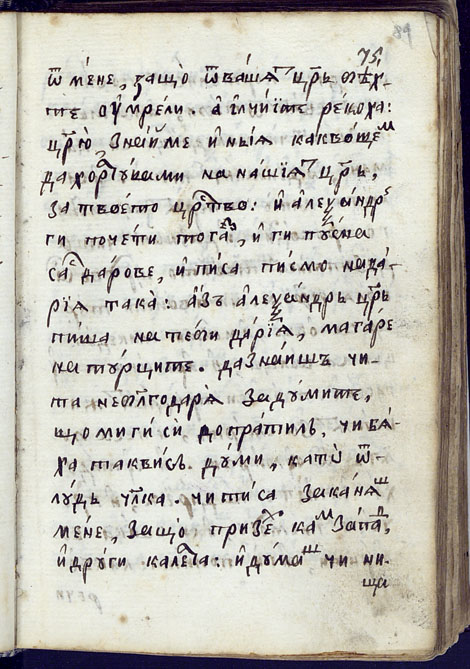 75
ѿ мене, защо ѿ вашїѧ цр҃ь бѣх-
те ѹмрели. а елчїйте рекоха:
цр҃ю, знайме и ньїѧ какво щем
да хоратꙋвами на нашїѧ цр҃ь,
за твоето цр҃ство: и алеѯандрꙿ
ги почети тога, и ги пꙋсна
сас дарове, и писа писмо на да-
рїѧ така: азъ алеѯандрь цр҃ь
пиша на тебе дарїѧ, магаре
на тꙋрците. да знаишъ чи
та неблгодарѧ за дꙋмите,
що ми ги си допратилъ, чи бѧ-
ха таквисъ дꙋми, като ѿ
лꙋдъ чл҃ка. чи ти са заканѧш
мене, защо призех кам запад,
и дрꙋги калета: и дꙋмаш чи ни-
ща